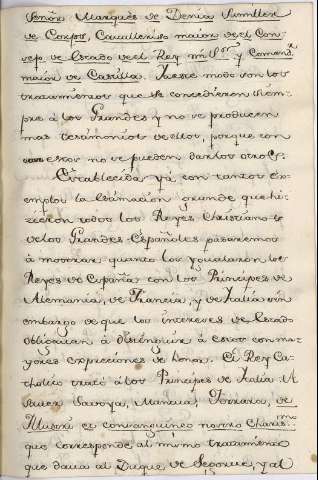 Señor Marqués de Denia Sumiller
de Corps, Cavallerizo maior, del Con-
sejo de Estado del Rey mi S.or y Comend.r
maior de Castilla. Deeste modo son los
tratamientos que se concedieron siem-
pre á los Grandes y no se producen
mas testimonios de ellos, porque con
estos no se pueden dar los otros.
Establecida yá con tantos ex-
emplos la estimacion grande que hi-
zieron todos los Reyes Christianos
de los Grandes Españoles pasaremos
á mostrar quanto los ygualaron los
Reyes de España con los Principes de
Alemania, de Francia, y de Italia sin
embargo de que los intereses de Estado
obligauan á distinguir á estos con ma-
yores expresiones de honor. El Rey Ca-
tholico trató á los Principes de Italia
Savoya, Mantua, Ferrara, de
Illustri et consanguineo nostro Chariss.mo
que corresponde al mismo tratamiento
que daua al Duque de Segorue, y al